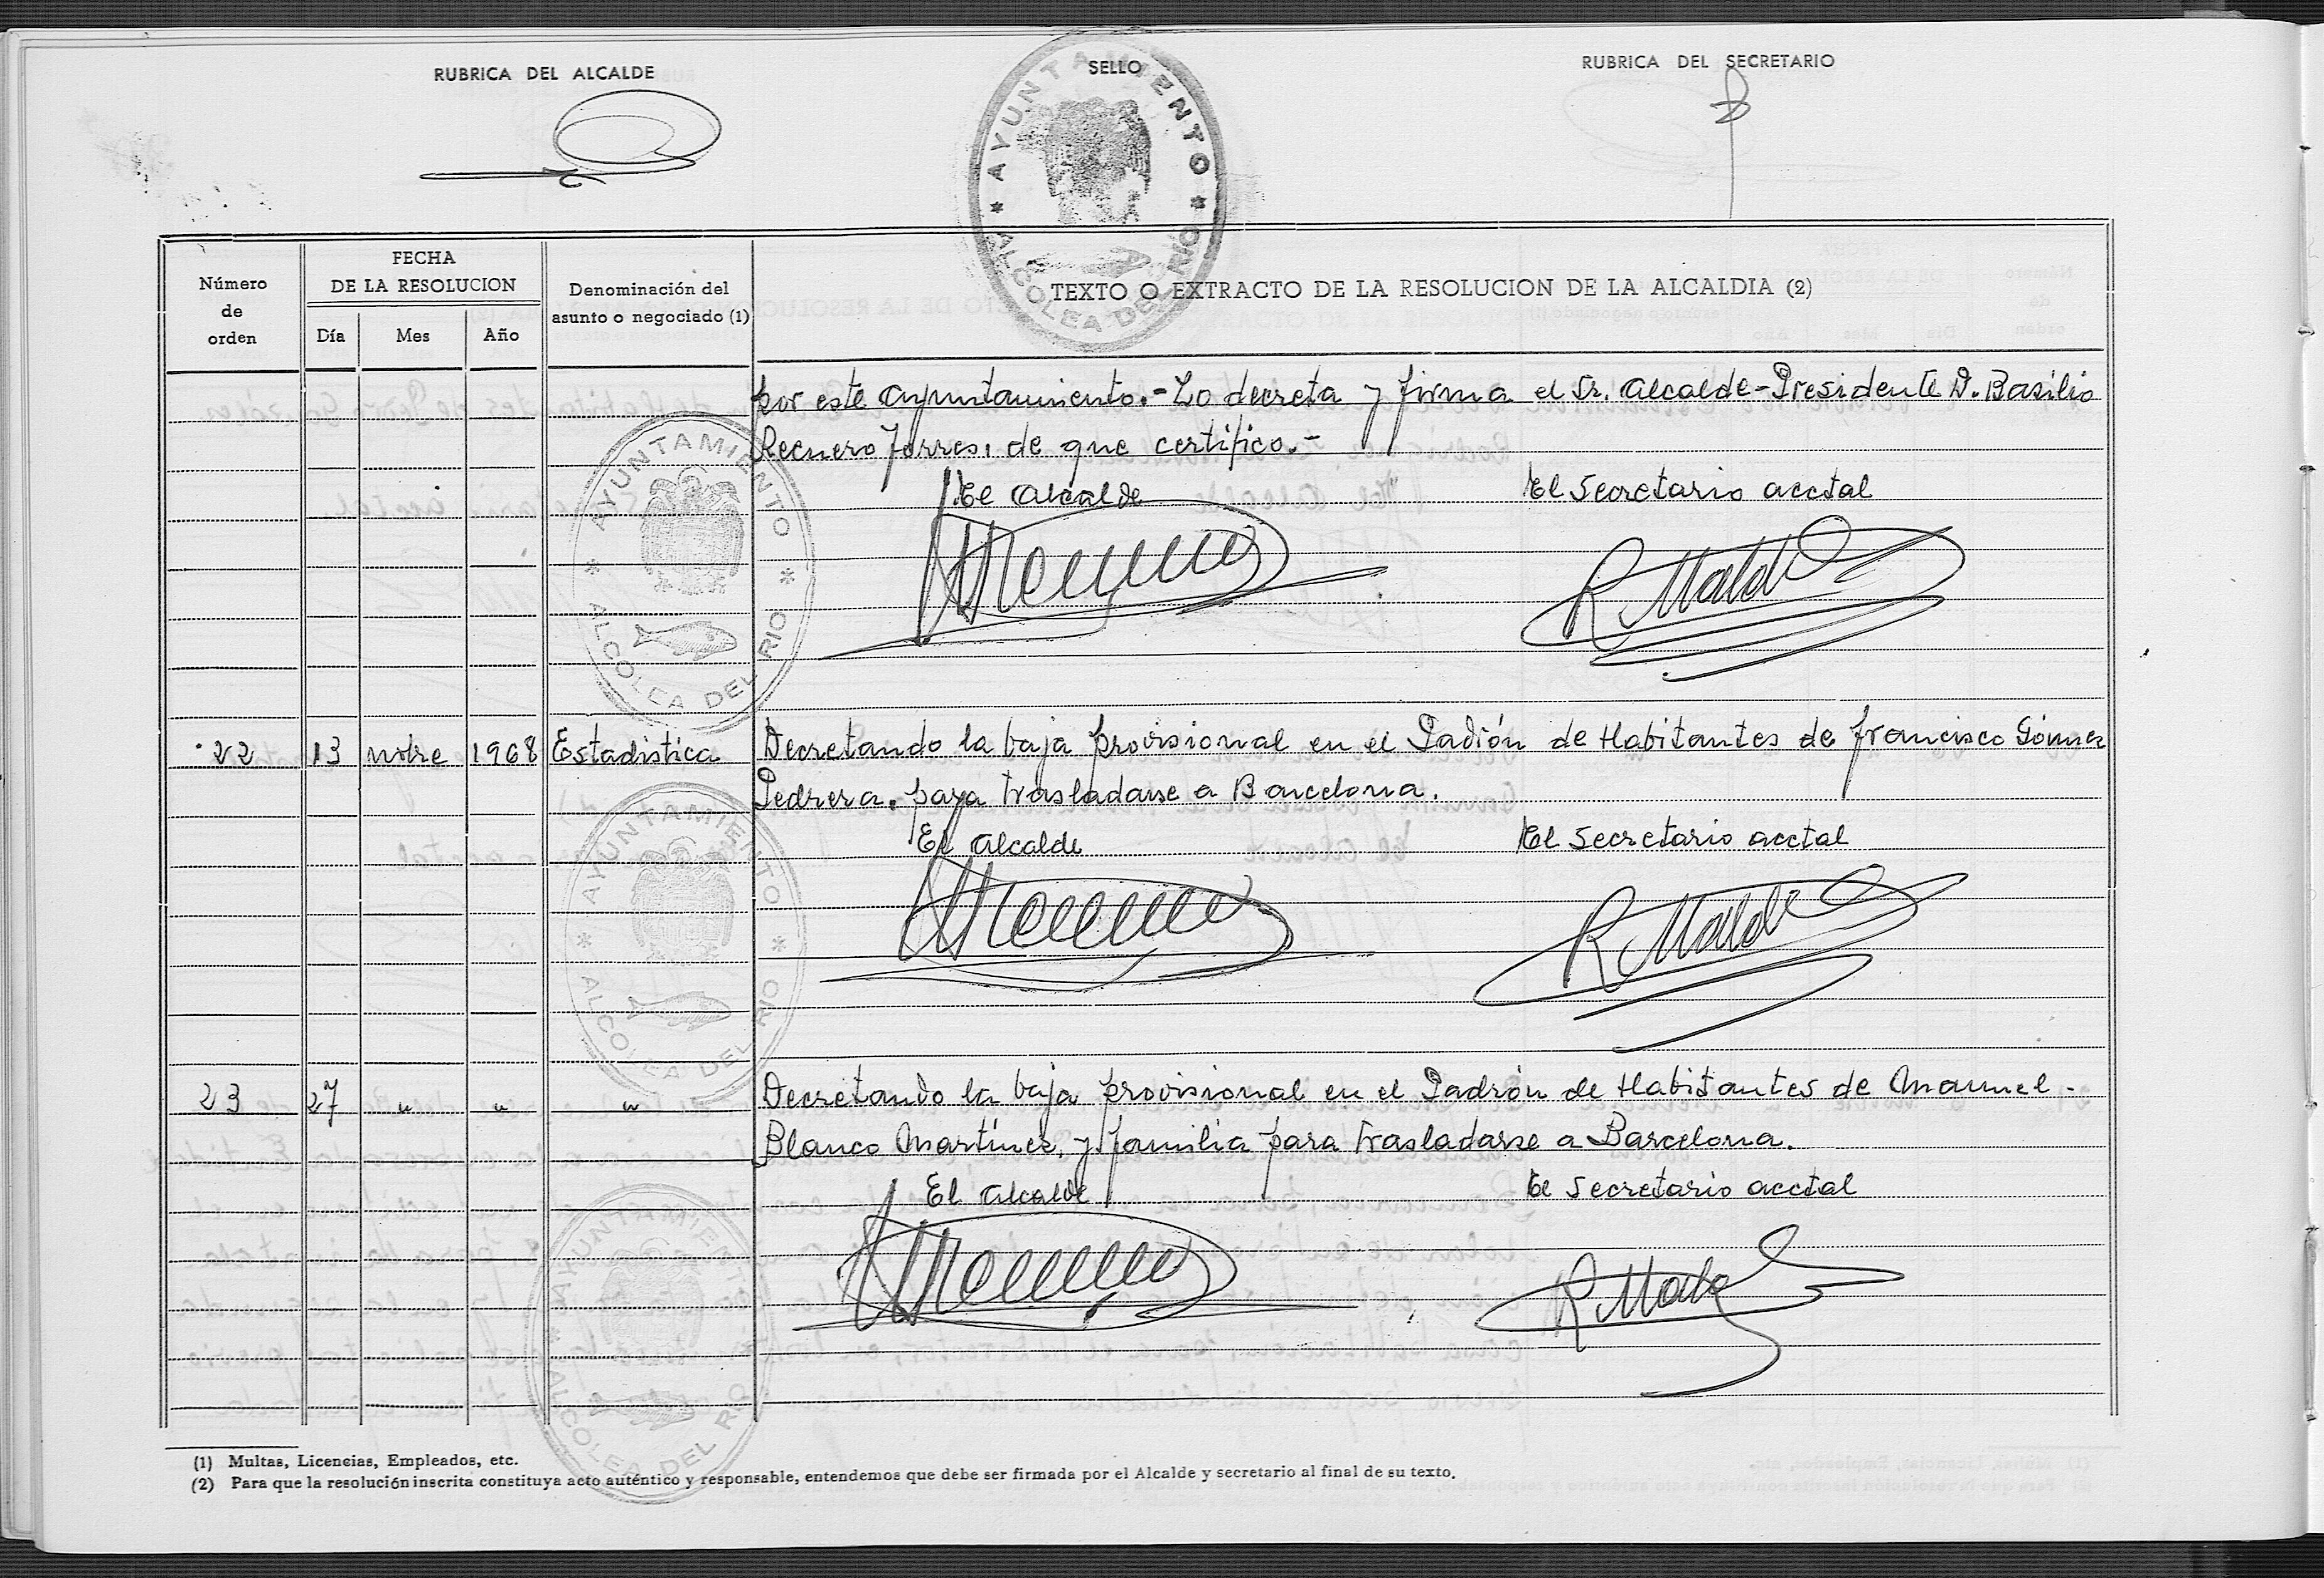 RUBRICA DEL ALCALDE
SELLO
RUBRICA DEL SECRETARIO
* AYUNTAMIENTO *
ALCOLEA DEL RIO
Número de orden
FECHA DE LA RESOLUCION
Día Mes Año
Denominación del asunto o negociado (1)
TEXTO O EXTRACTO DE LA RESOLUCION DE LA ALCALDIA (2)
por este Ayuntamiento.- Lo decreta y firma el Sr. Alcalde-Presidente D. Basilio
Recuero Torres, de que certifico.-
El Alcalde El Secretario acctal
* AYUNTAMIENTO *
ALCOLEA DEL RIO
R Mald
22 13 nvbre 1968 Estadistica Decretando la baja provisional en el Padrón de Habitantes de Francisco Gómez
Pedrera, para trasladarse a Barcelona.
El Alcalde El Secretario acctal
* AYUNTAMIENTO *
ALCOLEA DEL RIO
R Mald
23 27 " " " Decretando la baja provisional en el Padrón de Habitantes de Manuel -
Blanco Martínez, y familia para trasladarse a Barcelona.
El Alcalde El Secretario acctal
* AYUNTAMIENTO *
ALCOLEA DEL RIO
(1) Multas, Licencias, Empleados, etc.
(2) Para que la resolución inscrita constituya acto auténtico y responsable, entendemos que debe ser firmada por el Alcalde y secretario al final de su texto.